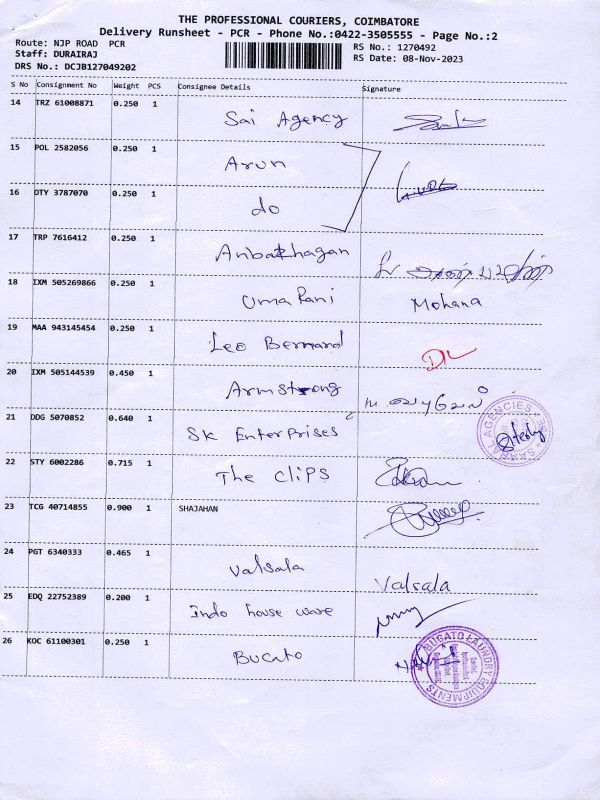 THE PROFESSIONAL COURIERS, COIMBATORE
Delivery Runsheet - PCR - Phone No.:0422-3505555 - Page No.:2
Route: NJP ROAD PCR
Staff: DURAIRAJ
DRS No.: DCJB127049202
RS No.: 1270492
RS Date: 08-Nov-2023
S No Consignment No Weight PCS Consignee Details Signature
14 TRZ 61008871 0.250 1 Sai Agency
15 POL 2582056 0.250 1 Arun
16 OTY 3787070 0.250 1 do
17 TRP 7616412 0.250 1 Anbazhagan
18 IXM 505269866 0.250 1 Uma Rani Mohana
19 MAA 943145454 0.250 1 Leo Bernard DL
20 IXM 505144539 0.450 1 Armstrong
21 DDG 5070852 0.640 1 SK Enterprises
22 STY 6002286 0.715 1 The Clips
23 TCG 40714855 0.900 1 SHAJAHAN
24 PGT 6340333 0.465 1 Valsala Valsala
25 EDQ 22752389 0.200 1 Indo house ware
26 KOC 61100301 0.250 1 Bucato
BUGATO LAUNDRY EQUIPMENTS